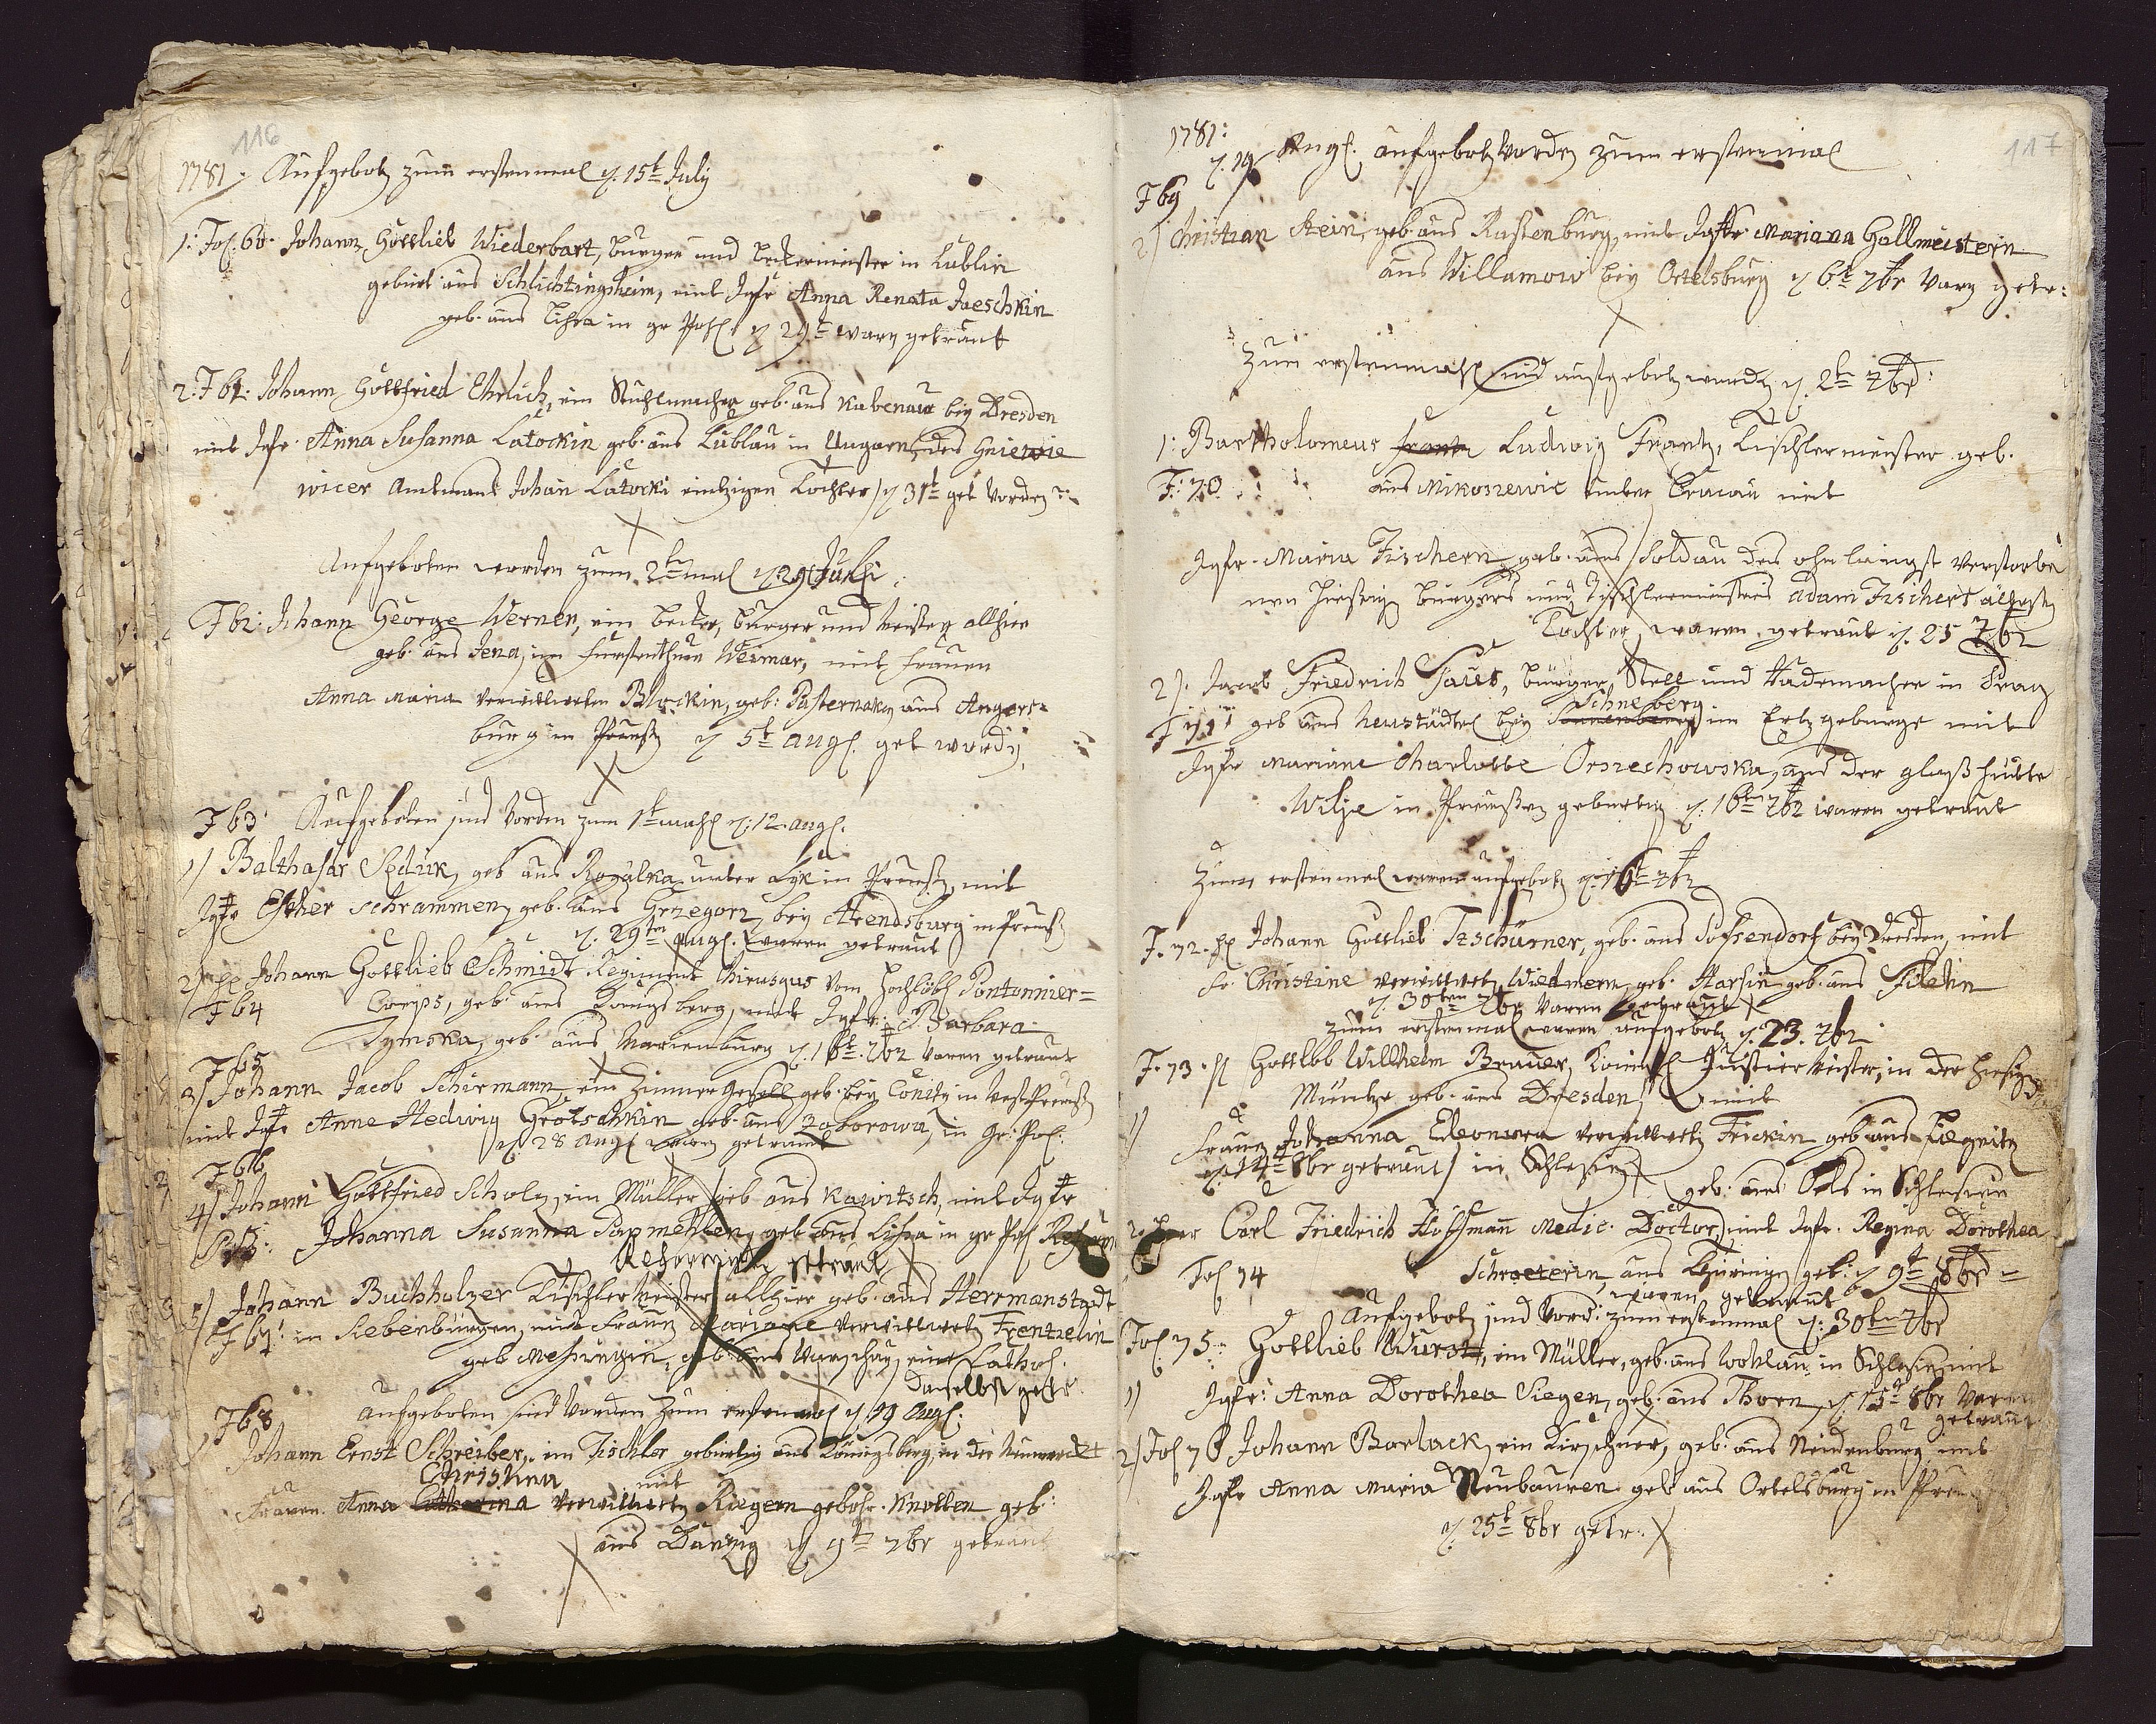 116
1781. Aufgebotz zum erstenmal d. 15t July
1. Fol. 60. Johann Gottlieb Wiederbart, Burger und Beckermeister in Lublin
gebürt. aus Schlichtingsheim, mit Jgfr Anna Renata Jaeschkin
geb. aus Lissa in gr Pohl. d 29t waren getraut
2. F 61. Johann Gottfried Ehrlich, ein Stuhlmacher geb. aus Rabenau bey Dresden
mit Jgfr. Anna Susanna Latockin geb. aus Lublau in Ungarn, des Gniewie
wicer Amtmanns Johan Latocki eintzigen Tochter / d 31t get. worden
Aufgeboten worden zum 2t mal d. 29 Juli.
F 62: Johann George Werner, ein Becker, Burger und Meister allhier
geb. aus Jena, im Furstenthum Weimar, mit Frauen
Anna Maria verwittweten Blockin, geb. Pasternakin aus Angers=
burg in Preußen d 5t Aug. get wordn
F 63 Aufgeboten sind worden zum 1t mahl d. 12 Aug.
1) Balthasar Seduk, geb aus Rogalka unter Lyk in Preußen, mit
Jgfr Esther Schrammen, geb. aus Grzegorz bey Arendsburg in Preuß
d. 29ten Aug. waren getraut
2) H Johann Gottlieb Schmidt Regiment Chirurgus vom hochlöbl Pontonnier=
F 64 Corps, geb. aus Königsberg, mit Jgfr. Barbara
Tymska, geb. aus Marienburg d. 16t 7br waren getraut
F 65
3) Johann Jacob Schirmann, ein Zimmer Gesell geb. bey Conitz in West Preuß
mit Jgfr Anne Hedwig Grotschkin geb. aus Zaborowa, in Gr. Pohl.
d. 28 Aug waren getraut
F 66
4) Johann Gottfried Scholz, ein Müller geb aus Rawitsch, mit Jgfr
Johanna Susanna geb. aus Lissa in gr Pohl
getraut
5) Johann Buchholzer Tischler Meister allhier geb. aus Herrmanstadt
F 67. in Siebenbürgen, mit Frauen Mariane verwittweten Frentzelin
geb Messingin, geb. aus Warschau, eine Cathol.
daselbst getr.
F 68 Aufgeboten sind worden zum erstenmal d 19 Aug.
Johann Ernst Schreiber, ein Tischler gebürtig aus Königsberg in der Neumarck
Christina mit
Frauen Anna Catharina verwittweten Riegern gebohr. Knollen geb.
aus Danzig d 9t 7br getraut
117
1781.
d. 19 Aug. aufgebotz worden zum erstenmal
F 69
2) Christian Stein, geb. aus Rastenburg, mit Jgfr. Mariana Hallmeistern
aus Willamowi bey Ortelsburg d 6t 7br waren getr:
Zum erstenmahl sind aufgebotz worden d. 2t 7br:
1. Bartholomeus Frantz Ludwig Frantz, Tischlermeister geb.
F. 70 aus Mikoszewic unter Cracau mit
Jgfr. Maria Fischern geb. aus Soldau des ohnlängst verstorbe
nen hiesigen Burgers und Tischlermeisters Adam Fischers ältesten
Tochter, waren getraut d. 25 7br
2). Jacob Friedrich Taut, Bürger, Stell und Rademacher in Prag
Schneberg
F 71 geb aus Neustädtel bey Sonnenberg im Ertzgeburge mit
Jgfr Mariane Charlotte Orszechowska, aus der Glaßhutte
in Preußen gebürtig d. 16t 7br waren getraut
Zum erstenmal waren aufgebotz d. 16t 7br
F. 72. H Johann Gottlieb Tzschürner, geb. aus bey Dresden, mit
Fr. Christine verwittwete Wiedmern, geb. Harsin geb. aus Filehn
d. 30ten 7br waren getraut
Zum erstenmal waren aufgebotz d. 23. 7br
F. 73. H Gottlob Willhelm Brauer, Königl Justier Meister, in der hiesigen
Müntze geb. aus Dresden, mit
1) Frauen Johanna Eleonora verwittwete Frickin geb aus Liegnitz
d. 14t 8br getraut / in Schlesien
geb. aus Oels in Schlesien
2 Herr Carl Friedrich Hoffmann Medic. Doctor, mit Jgfr. Regina Dorothea
Fol 74 Schroeterin, aus Thüringen geb: d 9t 8br =
waren getraut
Aufgebotz sind word. zum erstenmal d. 30ten 7br
Fol 75. Gottlieb Wurst, ein Müller, geb. aus Wohlau in Schlesien, mit
1) Jgfr. Anna Dorothea Siegen, geb. aus Thorn, d. 15t 8br waren
getraut
2) Fol 76 Johann Borlack, ein Kirschner, geb. aus Neidenburg mit
Jgfr Anna Maria Neubauren geb aus Ortelsburg in Preuß
d. 25t 8br getr.